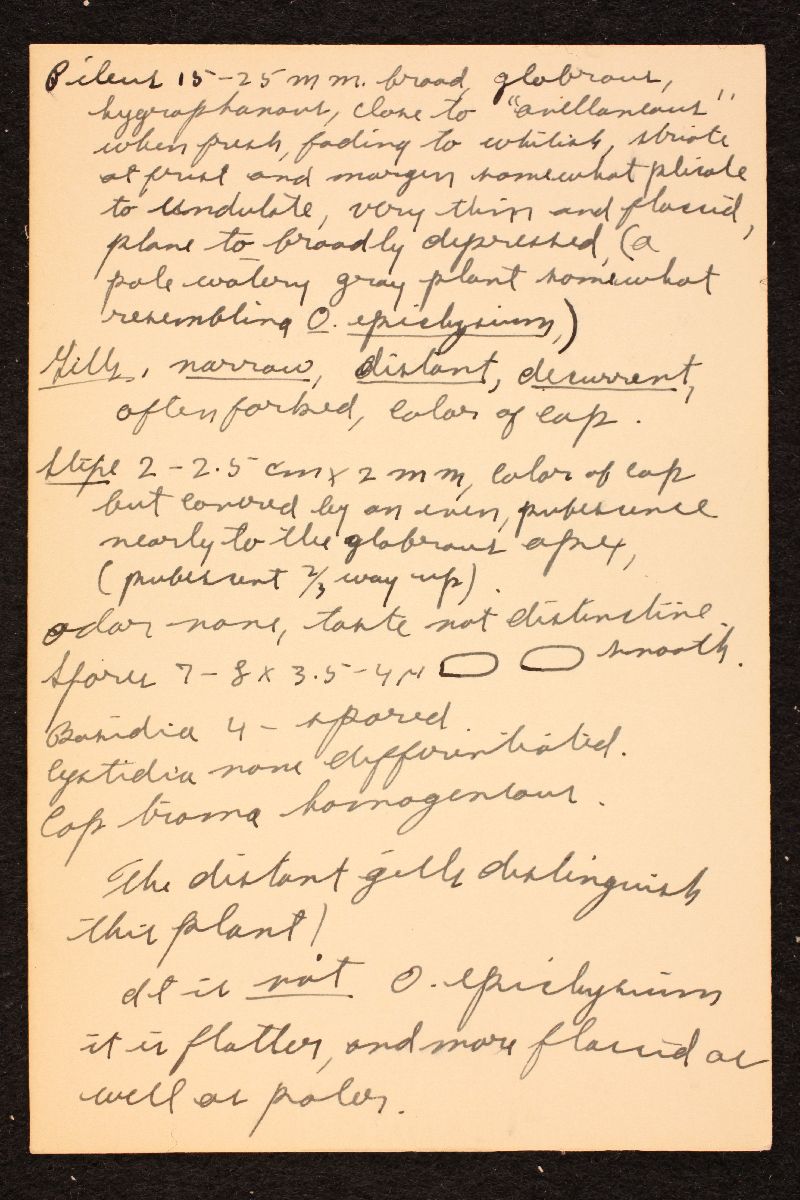 Pileus 15-25 mm. broad, glabrous,
hygrophanous, close to "avellaneous"
when fresh, fading to whitish, striate
at first and margin somewhat plicate
to undulate, very thin and flaccid,
plane to broadly depressed, (a
pale watery gray plant somewhat
resembling O. epichysium,)
Gills, narrow, distant, decurrent,
often forked, color of cap.
Stipe 2-2.5 cm x 2 mm, color of cap
but covered by an even, pubescence
nearly to the glabrous apex,
(pubescent 2/3 way up).
odor none, taste not distinctive.
Spores 7-8 x 3.5-4 µ smooth.
Basidia 4-spored.
Cystidia none differentiated.
Cap trama homogenous.
The distant gills distinguish
this plant!
It is not O. epichysium
it is flatter, and more flaccid as
well as paler.